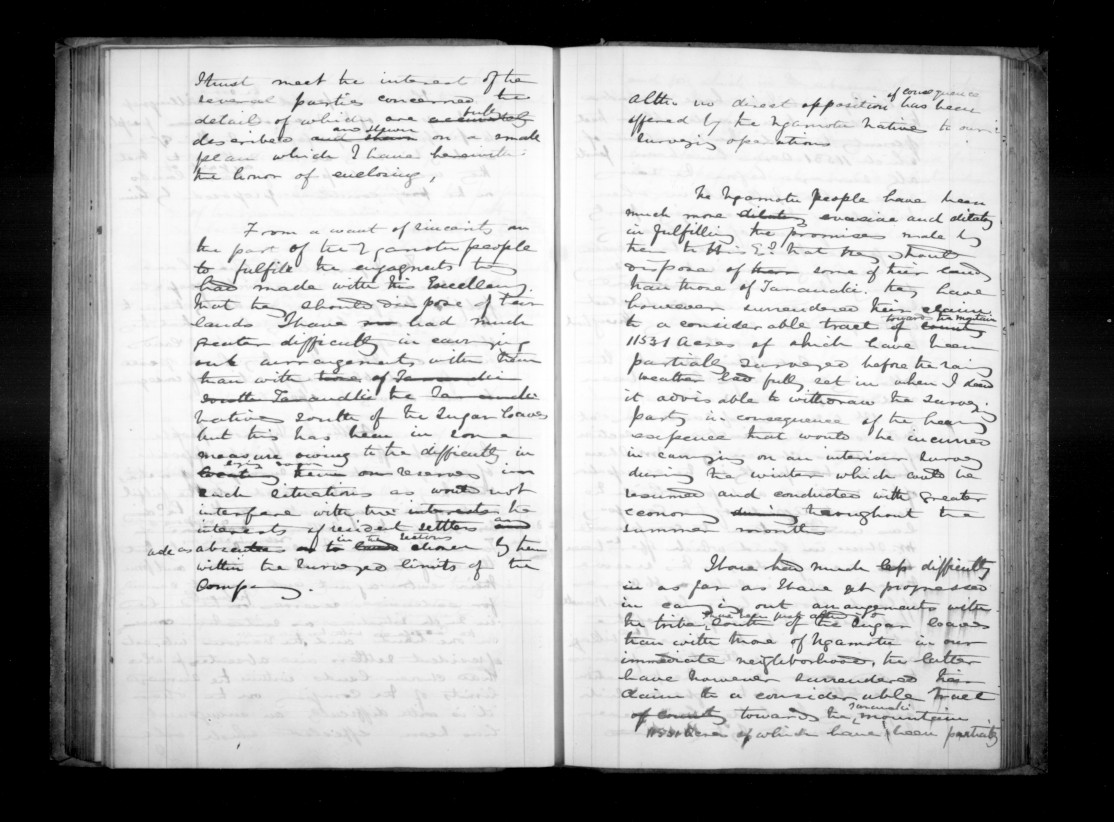 I trust meet the interest of the
several parties concerned, the
details of which are accurately fully
described and shewn are shewn on a small
plan which I have herewith
the honor of enclosing,
From a want of sincerity on
the part of the Ngamotu people
to fulfil the engagmts they
had made with His Excellency
that they should dispose of their
lands I have had much
greater difficulty in carrying
out arrangements with them
than with those of Taranaki
South Taranaki the Taranaki
Natives South of the Sugar loaves
but this has been in some
measure owing to the difficulty in
locating their own reserves in
such situations as would not
interfere with the interests the
interests of resident settlers and
absentees in the sections chosen by them
within the surveyed limits of the
Compy.
altho no direct opposition of consequence has been
offered by the Ngamotu Natives to our
surveying operations
The Ngamotu People have been
much more dilatory evasive and dilatory
in fulfilling the promises made by
them to His Ex. that they should
dispose of them some of their lands
than those of Taranaki. they have
however surrendered their claim
to a considerable tract of country toward the mountain
11531 Acres of which have been
partially surveyed before the rainy
weather had fully set in when I deemed
it advisable to withdraw the surveying
party in consequence of the heavy
expence that would be incurred
in carrying on an interior survey
during the winter which could be
resumed and conducted with greater
economy during throughout the
summer months
I have had much less difficulty
in as far as I have yet progressed
in carrying out arrangements with
the tribe South of the Sugar loaves
than with those of Ngamotu in our
immediate neighborhood, the latter
have however surrendered their
claim to a considerable tract
of country towards the Taranaki mountain
11531 Acres of which have been partially